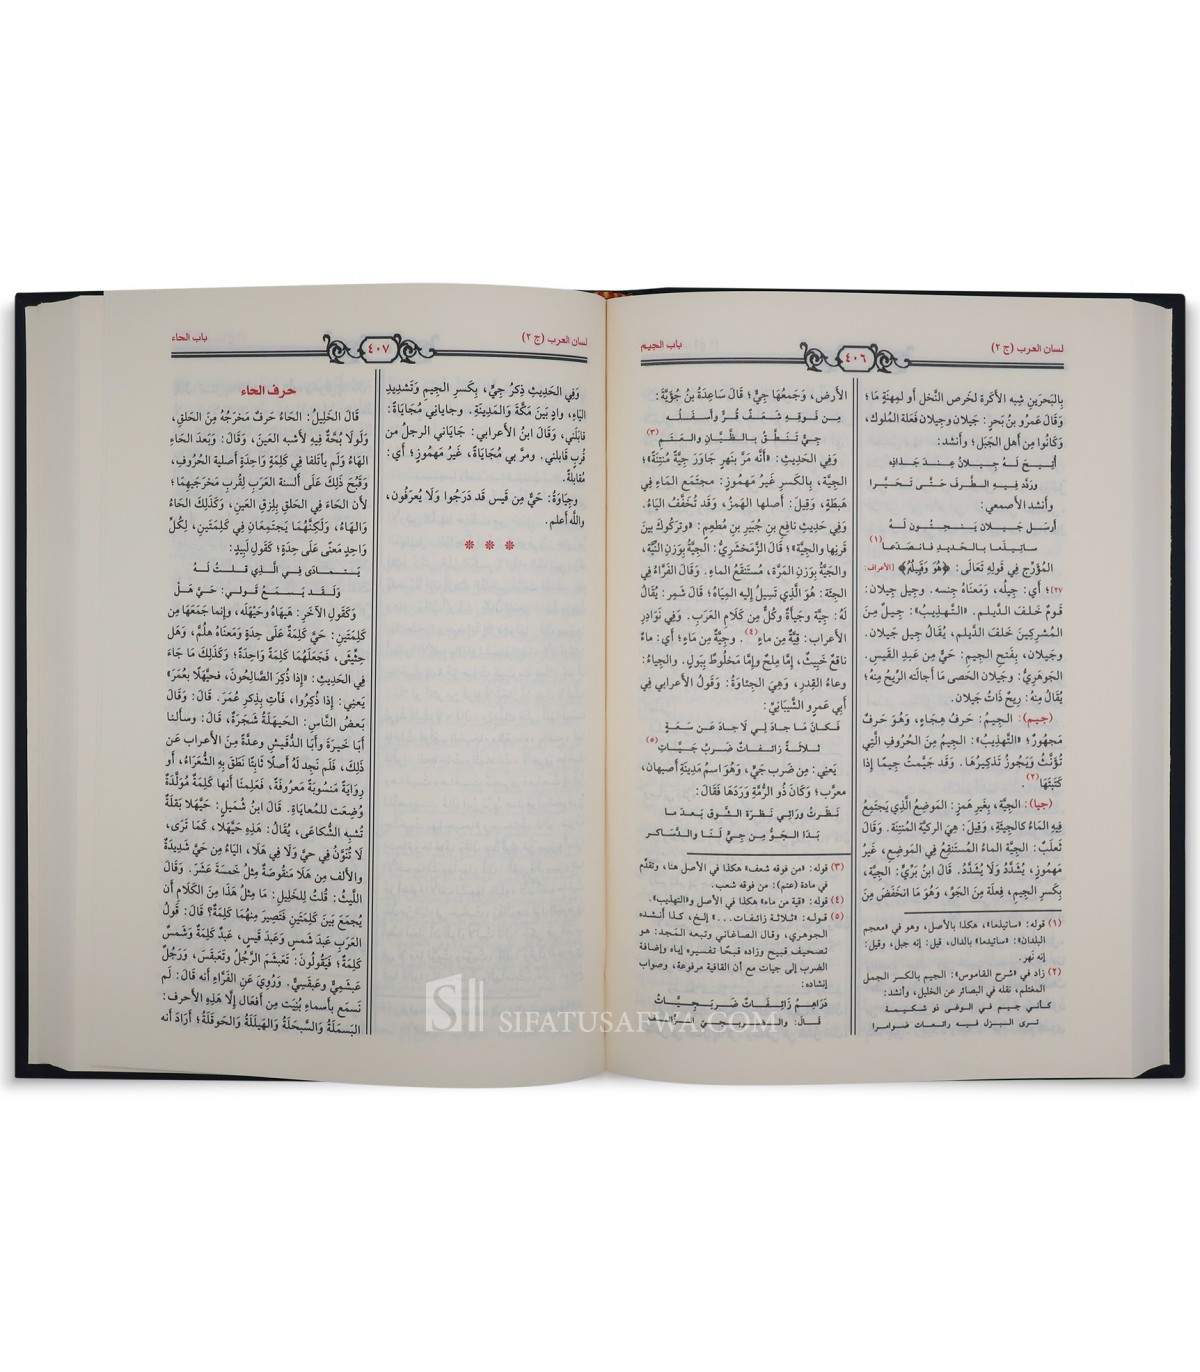 لسان العرب (ج ٢)
٤٠٦
باب الجيم
بِالبَحرَينِ شِبه الأكَرة لخَرصِ النَّخل أو لمِهنَةٍ مَا؛
وَقَالَ عَمرُو بنُ بَحرٍ: جَيلان وجِيلان فَعَلة المُلوك،
وَكَانُوا مِن أَهلِ الجَبَل؛ وأنشد:
أُتِيحَ لَهُ جِيلانُ عِندَ جَذاذِهِ
وردَّد فِيهِ الطَّرفَ حَتَّى تَحَيَّرا
وأنشد الأصمعي:
أرسَل جَيلان يَنحِتُون لَهُ
ساتِيذَما بالحَدِيدِ فانصَدَعا(١)
المُؤرِّج فِي قولِهِ تَعَالَى: ﴿هُوَ وَقَبِيلُهُ﴾ [الأعراف:
٢٧]؛ أي: جِيلُه، وَمَعنَاهُ جِنسه. وجِيل جِيلان:
قومٌ خَلفَ الدَّيلم. «التَّهذِيبُ»: جِيلٌ مِنَ
المُشرِكِينَ خَلفَ الدَّيلم، يُقَالُ جِيل جَيلان.
وجَيلان، بِفَتحِ الجِيمِ: حَيٌّ مِن عَبدِ القَيسِ.
الجَوهَرِيُّ: وجَيلان الحَصى مَا أجالَته الرِّيحُ مِنهُ؛
يُقَالُ مِنهُ: رِيحٌ ذَاتُ جَيلان.
(جيم): الجِيمُ: حَرفُ هِجَاءٍ، وَهُوَ حَرفٌ
مَجهُورٌ؛ «التَّهذِيبُ»: الجِيمُ مِنَ الحُرُوفِ الَّتِي
تُؤَنَّثُ وَيَجُوزُ تَذكِيرُهَا. وَقَد جَيَّمتُ جِيمًا إِذَا
كَتَبتَها(٢).
(جيا): الجِيَة، بِغَيرِ هَمزٍ: المَوضِعُ الَّذِي يَجتَمِعُ
فِيهِ المَاءُ كالجِيئَةِ، وَقِيلَ: هِيَ الركيَّة المُنتِنة. وَقَالَ
ثَعلَبٌ: الجِيَّة الماءُ المُستَنقِعُ فِي المَوضِعِ، غَيرُ
مَهمُوزٍ، يُشَدَّدُ وَلَا يُشَدَّدُ. قَالَ ابنُ بَرِّيٍّ: الجِيَّة،
بِكَسرِ الجِيمِ، فِعلَة مِنَ الجَوِّ، وَهُوَ مَا انخَفَضَ مِنَ
(١) قوله: «ساتيذما»، هكذا بالأصل، وهو في «معجم
البلدان»: «ساتيدما» بالدال، قيل: إنه جبل، وقيل:
إنه نهر.
(٢) زاد في «شرح القاموس»: الجيم بالكسر الجمل
المغتلم، نقله في البصائر عن الخليل، وأنشد:
كأني جيم في الوغى ذو شكيمة
ترى البزل فيه رائعات ضوامرا
الأَرض، وَجَمعُهَا جِيٌّ؛ قَالَ سَاعِدَةُ بنُ جُؤَيَّةَ:
مِن فَوقِهِ شَعَفٌ قُرٌّ وأَسفَلُه
جِيٌّ تَنَطَّقُ بالظَّيَّانِ والعَتَمِ(٣)
وَفِي الحَدِيثِ: «أَنَّه مَرَّ بنَهرٍ جَاوَرَ جِيَّةً مُنتِنَةً»؛
الجِيَة، بِالكَسرِ غَيرُ مَهمُوزٍ: مجتمَع المَاءِ فِي
هَبطةٍ، وَقِيلَ: أصلها الهَمزُ، وَقَد تُخَفَّفُ اليَاءُ.
وَفِي حَدِيثِ نافِعِ بنِ جُبَيرِ بنِ مُطعِمٍ: «وتركوكَ بينَ
قَرنِها والجِيَّة»؛ قَالَ الزَّمَخشَرِيُّ: الجِيَّةُ بِوَزنِ النِّيَّة،
والجَيَّةُ بِوَزنِ المَرَّة، مُستَنقَعُ الماءِ. وَقَالَ الفَرَّاءُ فِي
الجِئَة: هُوَ الَّذِي تَسِيلُ إِلَيهِ المِيَاهُ؛ قَالَ شَمِر: يُقَالُ
لَهُ: جِيَّة وجَيأَةٌ وكُلٌّ مِن كَلَامِ العَرَبِ. وَفِي نَوَادِرِ
الأَعراب: قِيَّةٌ مِن ماءٍ(٤). وجِيَّةٌ مِن مَاءٍ؛ أي: ماءٌ
ناقعٌ خَبِيثٌ، إِمَّا مِلحٌ وإِمَّا مَخلُوطٌ بِبَولٍ. والجِياءُ:
وعاءُ القِدرِ، وَهِيَ الجِئاوَةُ؛ وَقَولُ الأَعرابي فِي
أَبِي عَمرٍو الشَّيبَانِيِّ:
فَكَانَ مَا جادَ لِي لَا جادَ عَن سَعَةٍ
ثلاثةٌ زائفاتٌ ضَربُ جَيَّاتِ(٥)
يَعنِي: مِن ضَربِ جَيٍّ، وَهُوَ اسمُ مَدِينَةِ أَصبهان،
معرَّب؛ وَكَانَ ذُو الرُّمَّةِ وَرَدَها فَقَالَ:
نَظَرتُ ورَائي نَظرَة الشَّوق بَعدَ ما
بَدَا الجَوُّ مِن جِيٍّ لَنَا والدَّساكر
(٣) قوله: «من فوقه شعف» هكذا في الأصل هنا، وتقدَّم
في مادة (عتم): من فوقه شعب.
(٤) قوله: «قية من ماء» هكذا في الأصل و«التهذيب».
(٥) قوله: «ثلاثة زائفات...» إلخ، كذا أنشده
الجوهري، وقال الصاغاني وتبعه المجد: هو
تصحيف قبيح وزاده قبحًا تفسيره إياه وإضافة
الضرب إلى جيات مع أن القافية مرفوعة، وصواب
إنشاده:
دَرَاهِمُ زَائِفَاتٌ ضَربَجِيَّاتُ
لسان العرب (ج ٢)
٤٠٧
باب الحاء
وَفِي الحَدِيثِ ذِكرُ جِيٍّ، بِكَسرِ الجِيمِ وَتَشدِيدِ
اليَاءِ، وادٍ بَينَ مَكَّةَ وَالمَدِينَةِ. وجاياني مُجَايَاةً:
قابَلَني، وَقَالَ ابنُ الأعرابي: جَايَاني الرجلُ من
قُربٍ قَابَلني. ومرَّ بي مُجَايَاةً، غَيرُ مَهمُوزٍ؛ أي:
مُقابلةً.
وجِيَاوَةُ: حَيٌّ مِن قَيس قَد دَرَجُوا وَلَا يُعرَفُون،
واللَّه أعلم.
حرف الحاء
قَالَ الخَلِيلُ: الحَاءُ حَرفٌ مَخرَجُهُ مِنَ الحَلقِ،
وَلَولَا بُحَّةٌ فِيهِ لأَشبه العَينَ، وَقَالَ: وَبَعدَ الحَاءِ
الهَاءُ وَلَم يأتَلفا فِي كَلِمَةٍ وَاحِدَةٍ أصلية الحُرُوفِ،
وَقَبُحَ ذَلِكَ عَلَى ألسنة العَرَبِ لِقُربِ مَخرَجَيهِمَا؛
لأن الحَاءَ فِي الحَلقِ بِلِزقِ العَينِ، وَكَذَلِكَ الحَاءُ
وَالهَاءُ، وَلَكِنَّهُمَا يَجتَمِعَانِ فِي كَلِمَتَينِ، لِكُلِّ
وَاحِدٍ مَعنًى عَلَى حِدَةٍ؛ كَقَولِ لَبِيدٍ:
يَتمادَى فِي الَّذِي قلتُ لَهُ
وَلَقَد يَسمَعُ قَولي: حَيَّ هَلْ
وَكَقَولِ الآخَرِ: هَيهَاهُ وحَيْهَلَه، وإنما جَمَعَها مِن
كَلِمَتَينِ: حَيّ كَلِمَةٌ عَلَى حِدَةٍ وَمَعنَاهُ هلُمَّ، وَهَل
حِثِّيثَى، فَجَعَلَهُمَا كَلِمَةً وَاحِدَةً؛ وَكَذَلِكَ مَا جَاءَ
فِي الحَدِيثِ: «إذا ذُكِرَ الصَّالِحُونَ، فَحيَّهَلًا بعُمَرَ»
يَعنِي: إذا ذُكِرُوا، فَأتِ بِذِكرِ عُمَرَ. قَالَ: وَقَالَ
بَعضُ النَّاسِ: الحَيهَلَةُ شَجَرَةٌ، قَالَ: وسألنا
أَبَا خَيرَةَ وأَبَا الدُّقَيشِ وعدَّةً مِنَ الأعراب عَن
ذَلِكَ، فَلَم نَجِد لَهُ أَصلًا ثَابِتًا نطَقَ بِهِ الشُّعَرَاءُ، أو
رِوَايَةً مَنسُوبَةً مَعرُوفَةً، فَعَلِمنَا أنها كَلِمَةٌ مُوَلَّدَةٌ
وُضِعَت للمُعاياةِ. قَالَ ابنُ شُمَيلٍ: حَيَّهَلا بَقلَةٌ
تُشبِه الشُّكاعَى، يُقَالُ: هَذِهِ حَيَّهَلا، كَمَا تَرَى،
لَا تُنَوَّنُ فِي حيَّ وَلَا فِي هَلَا، اليَاءُ مِن حَيَّ شَدِيدَةٌ
والألف مِن هَلَا مَنقُوصَةٌ مِثلُ خَمسَةَ عَشَرَ. وَقَالَ
اللَّيثُ: قُلتُ لِلخَلِيلِ: مَا مِثلُ هَذَا مِنَ الكَلَامِ أن
يُجمَعَ بَينَ كَلِمَتَينِ فَتَصِيرَ مِنهُمَا كَلِمَةً؟ قَالَ: قَولُ
العَرَبِ عَبدَ شَمسٍ وَعَبدَ قَيسٍ، عَبدٌ كَلِمَةٌ وَشَمسٌ
كَلِمَةٌ؛ فَيَقُولُونَ: تَعَبشَمَ الرَّجُلُ وتَعَبقَسَ، وَرَجُلٌ
عَبشَمِيٌّ وعَبقَسِيٌّ. وَرُوِيَ عَنِ الفَرَّاءِ أنه قَالَ: لَم
نَسمَع بأسماءٍ بُنِيَت مِن أَفعَالٍ إلَّا هَذِهِ الأحرف:
البَسمَلَةُ وَالسَّبحَلَةُ وَالهَيلَلَةُ وَالحَوقَلَةُ؛ أَرَادَ أنه
SIFATUSAFWA.COM